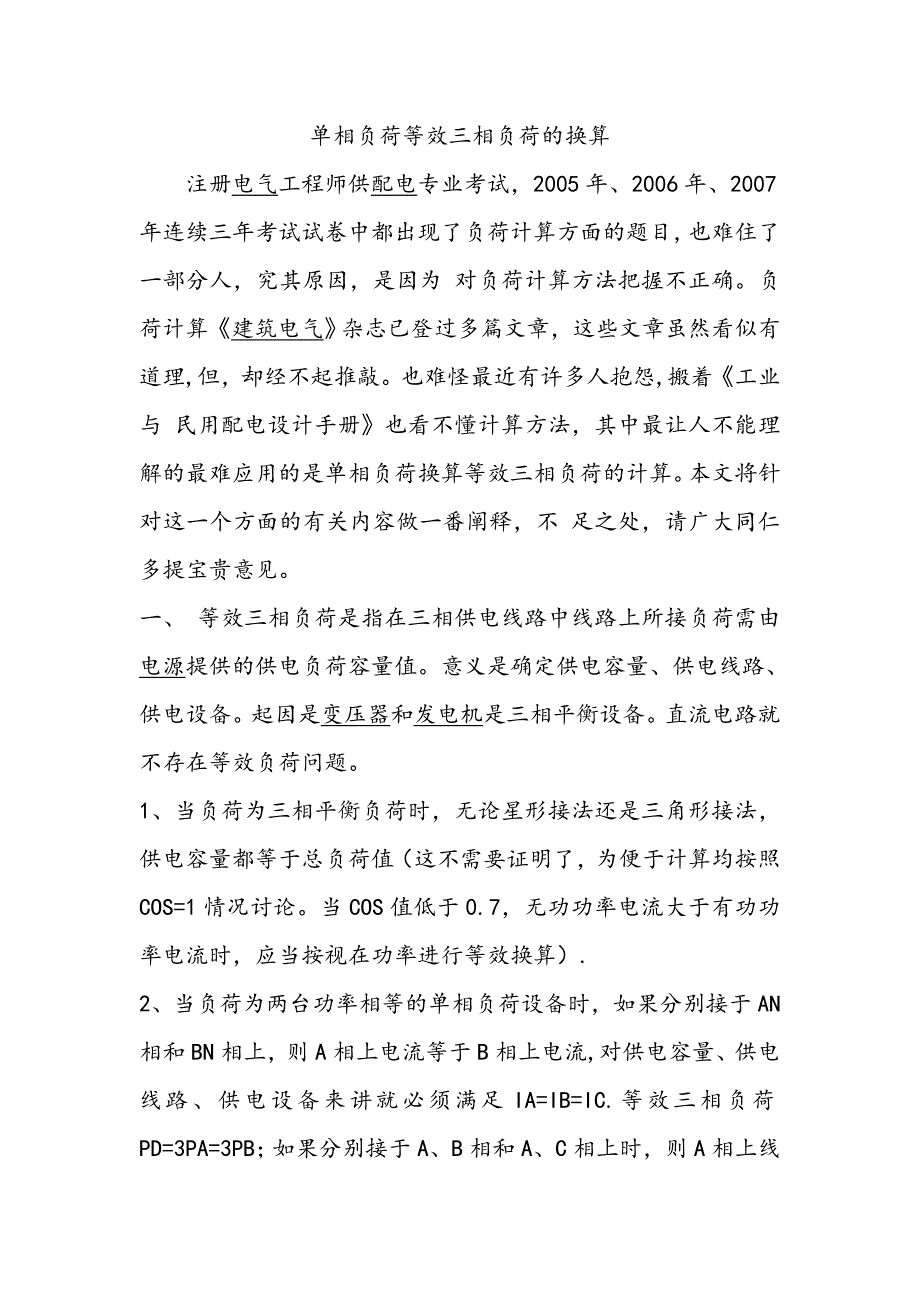 单相负荷等效三相负荷的换算
注册电气工程师供配电专业考试，2005 年、2006 年、2007
年连续三年考试试卷中都出现了负荷计算方面的题目,也难住了
一部分人，究其原因，是因为 对负荷计算方法把握不正确。负
荷计算《建筑电气》杂志已登过多篇文章，这些文章虽然看似有
道理,但，却经不起推敲。也难怪最近有许多人抱怨,搬着《工业
与 民用配电设计手册》也看不懂计算方法，其中最让人不能理
解的最难应用的是单相负荷换算等效三相负荷的计算。本文将针
对这一个方面的有关内容做一番阐释，不 足之处，请广大同仁
多提宝贵意见。
一、 等效三相负荷是指在三相供电线路中线路上所接负荷需由
电源提供的供电负荷容量值。意义是确定供电容量、供电线路、
供电设备。起因是变压器和发电机是三相平衡设备。直流电路就
不存在等效负荷问题。
1、当负荷为三相平衡负荷时，无论星形接法还是三角形接法，
供电容量都等于总负荷值（这不需要证明了，为便于计算均按照
COS=1 情况讨论。当 COS 值低于 0.7，无功功率电流大于有功功
率电流时，应当按视在功率进行等效换算）.
2、当负荷为两台功率相等的单相负荷设备时，如果分别接于 AN
相和 BN 相上，则 A 相上电流等于 B 相上电流,对供电容量、供电
线路、供电设备来讲就必须满足 IA=IB=IC.等效三相负荷
PD=3PA=3PB；如果分别接于 A、B 相和 A、C 相上时，则 A 相上线